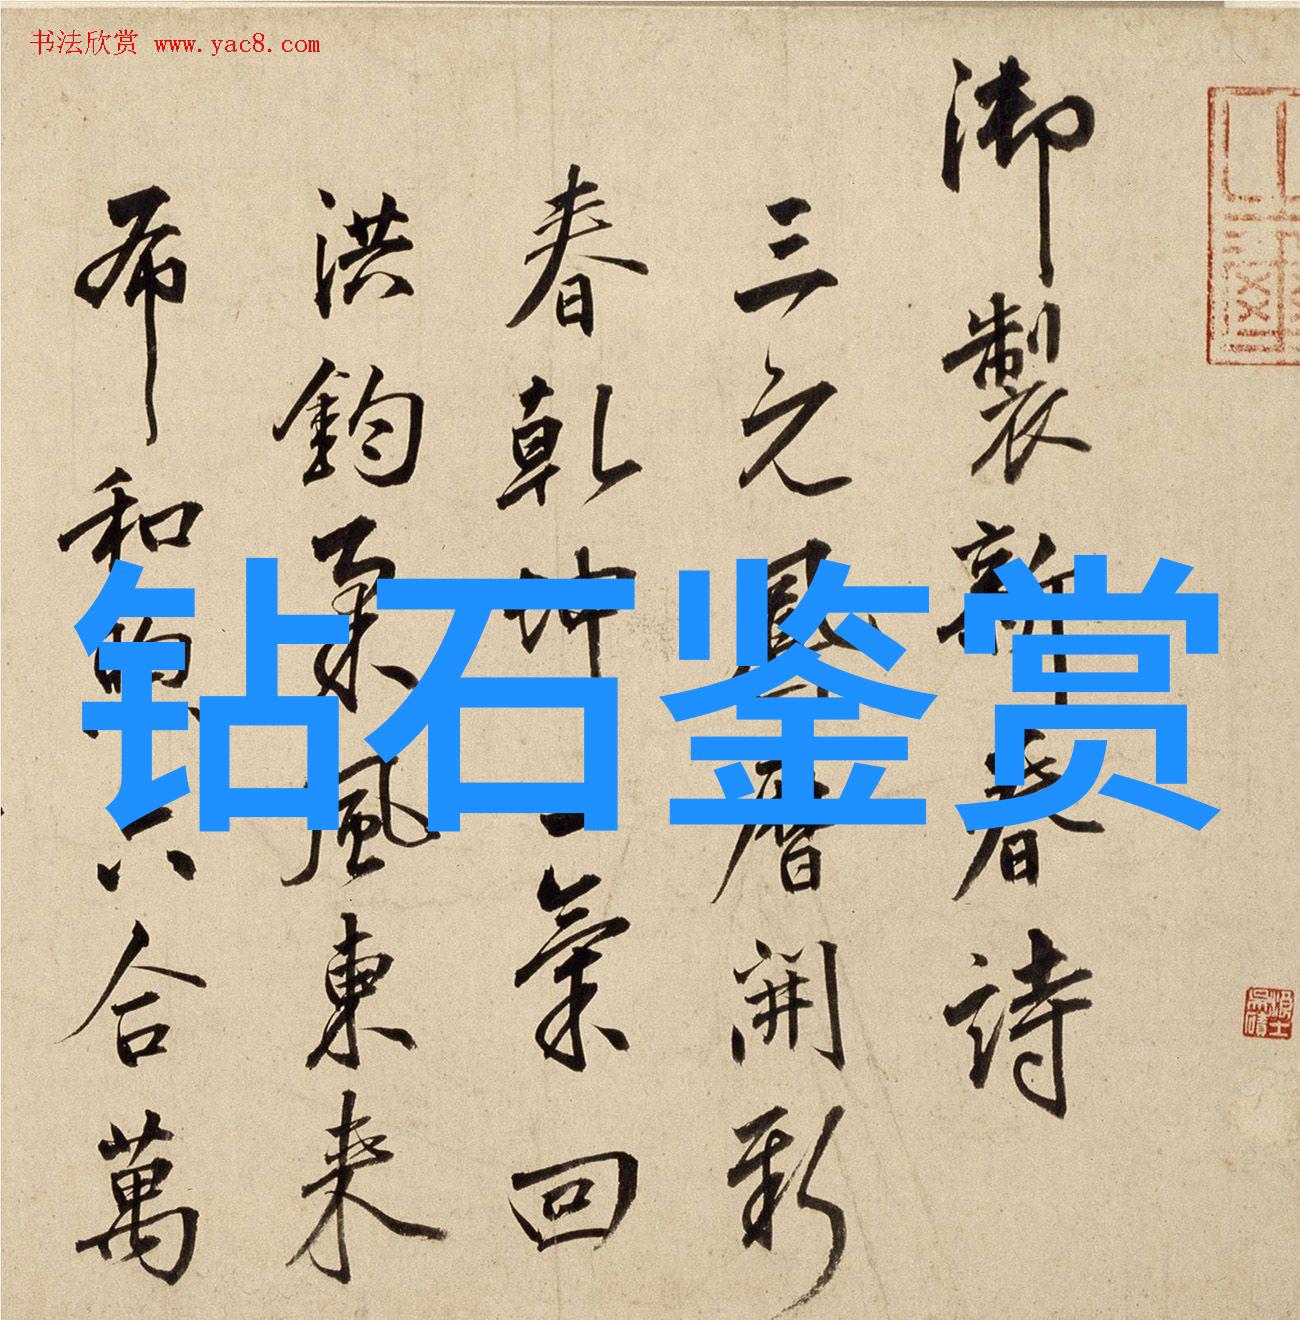 书法欣赏 www.yac8.com
御製新春詩
三元鳳曆開新
春乾坤一氣回
洪鈞東風東来
布和昫六合萬
钻石鉴赏